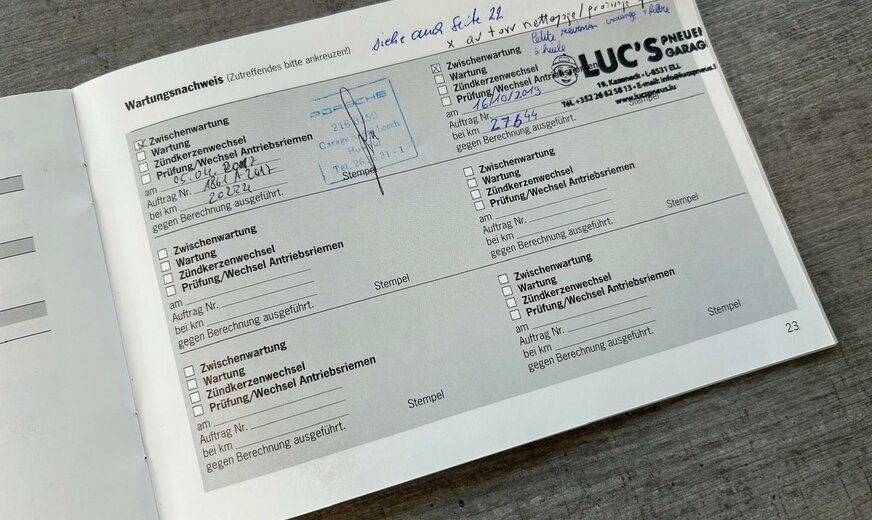 siehe auch Seite 22
x av + arr nettoyage/
Petite
à huile
Wartungsnachweis (Zutreffendes bitte ankreuzen!)
Zwischenwartung
Wartung
Zündkerzenwechsel
Prüfung/Wechsel Antriebsriemen
am 05.04.2017
Auftrag Nr.
bei km 20224
gegen Berechnung ausgeführt.
Stempel
PORSCHE
Garage
Zwischenwartung
Wartung
Zündkerzenwechsel
Prüfung/Wechsel Antriebsriemen
am 16/10/2019
Auftrag Nr.
bei km 27644
gegen Berechnung ausgeführt.
Stempel
LUC'S PNEUS
GARAG
19, Kaseneck - L-8531 ELL
Tél. +352 26 62 58 13 - E-mail: info@lucspneus.
www.lucspneus.lu
Zwischenwartung
Wartung
Zündkerzenwechsel
Prüfung/Wechsel Antriebsriemen
am
Auftrag Nr.
bei km
gegen Berechnung ausgeführt.
Stempel
Zwischenwartung
Wartung
Zündkerzenwechsel
Prüfung/Wechsel Antriebsriemen
am
Auftrag Nr.
bei km
gegen Berechnung ausgeführt.
Stempel
Zwischenwartung
Wartung
Zündkerzenwechsel
Prüfung/Wechsel Antriebsriemen
am
Auftrag Nr.
bei km
gegen Berechnung ausgeführt.
Stempel
Zwischenwartung
Wartung
Zündkerzenwechsel
Prüfung/Wechsel Antriebsriemen
am
Auftrag Nr.
bei km
gegen Berechnung ausgeführt.
Stempel
23